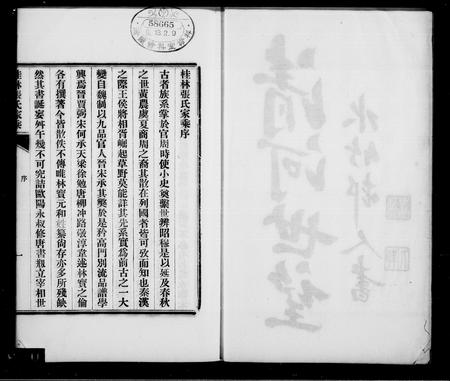 桂林張氏家乘序
古者族系掌於官周時使小史奠繫世辨昭穆是以延及春秋
之世黃農虞夏商周之裔其散在列國者皆可攷而知也秦漢
之際王侯將相胥崛起草野莫能詳其先系實為前古之一大
變自魏制以九品官人晉宋承其獘於是矜高門別流品譜學
興焉晉賈弼宋何承天梁徐勉唐柳冲路敬淳韋述林寶之倫
各有撰著今皆散佚不傳唯林寶元和姓纂尙存亦多所殘缺
然其書誕妄舛午幾不可究詰歐陽永叔修唐書瓶立宰相世
桂林張氏家乘
序
58665
清河世澤
水竹邨人書